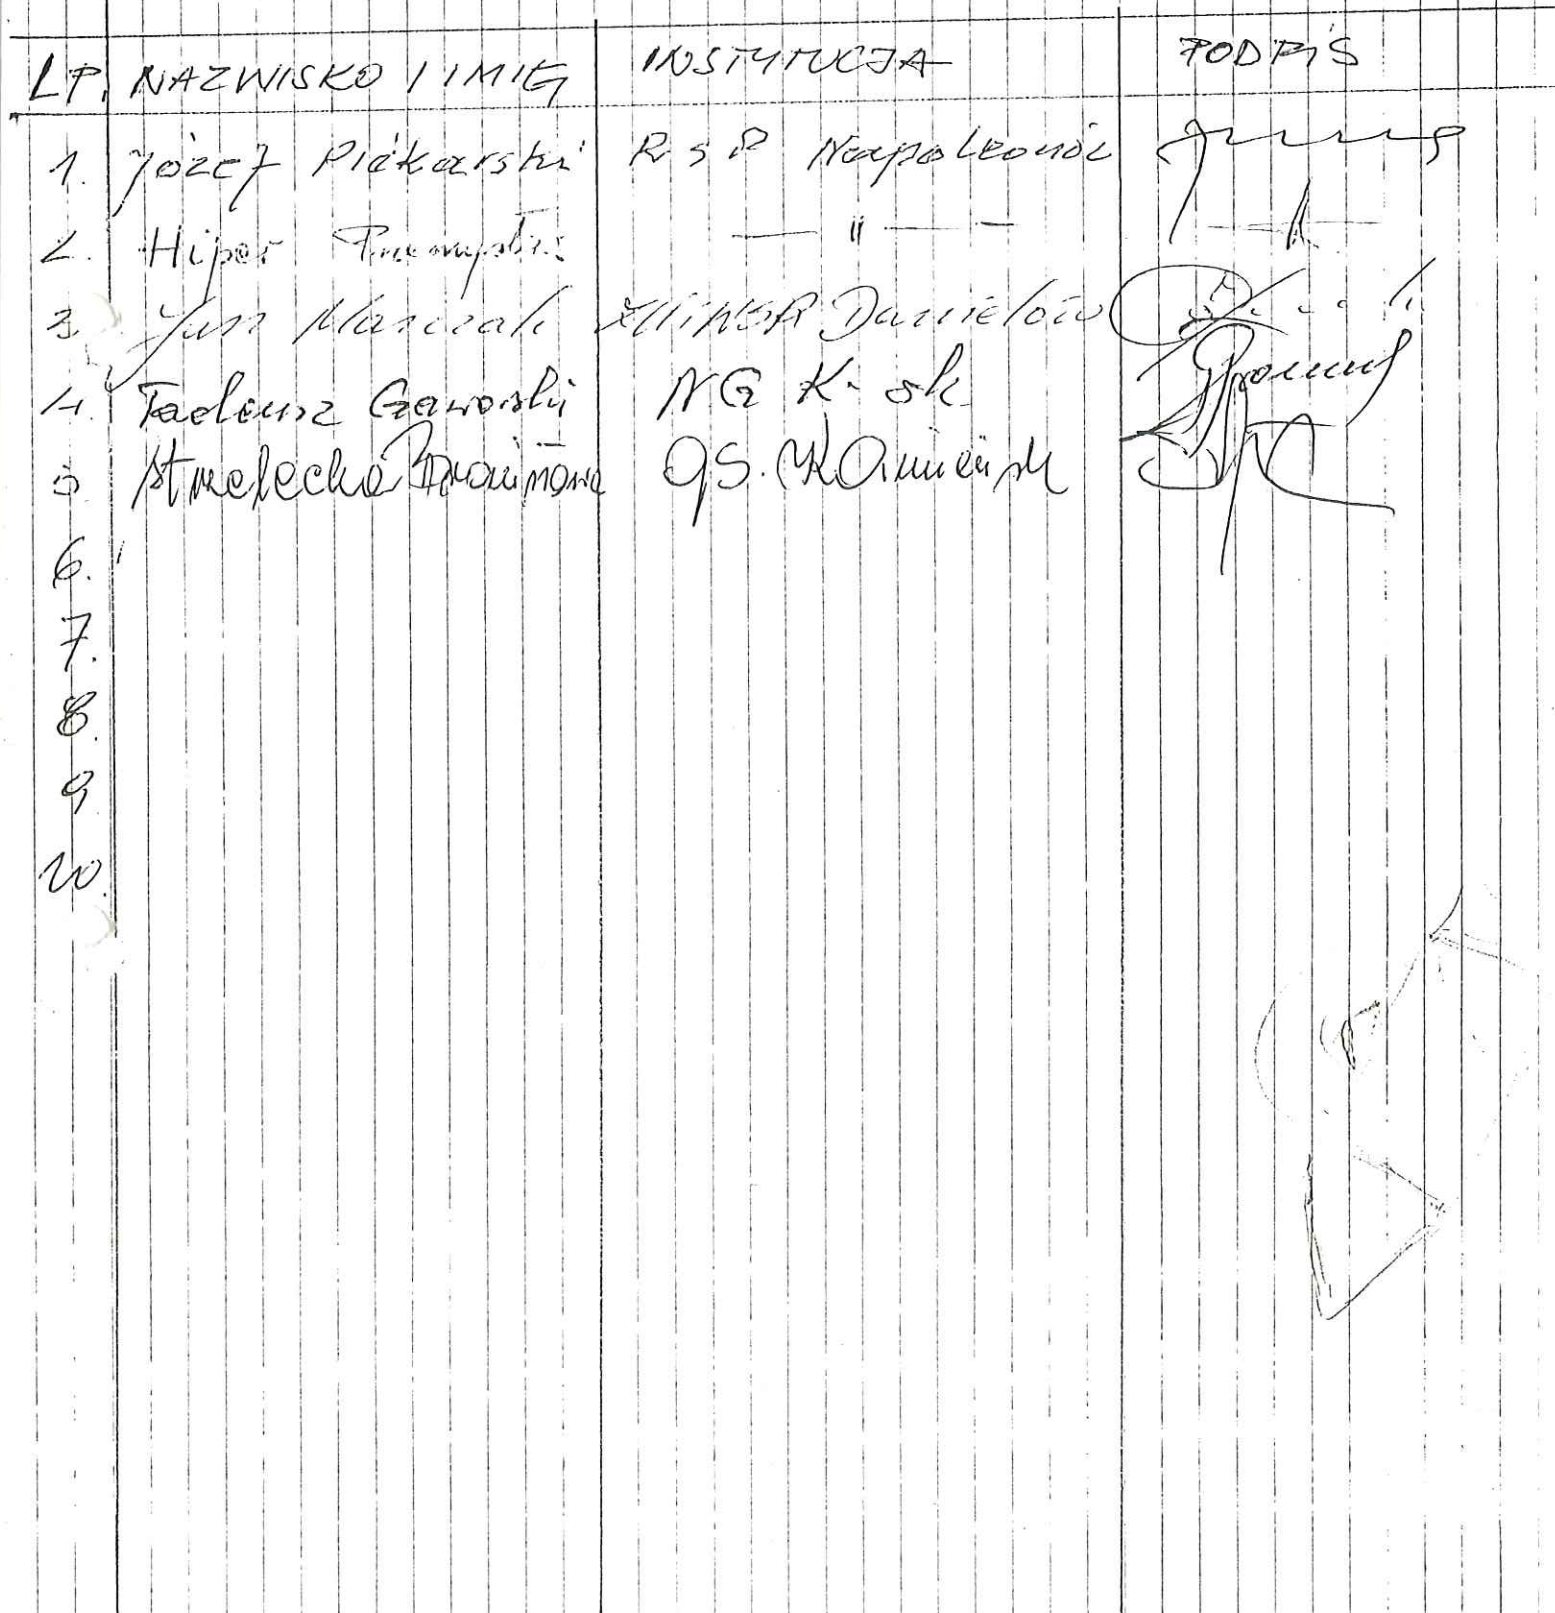 LP. NAZWISKO I IMIĘ INSTYTUCJA PODPIS
1. Józef Piekarski RSP Napoleonów
2. Hiper Przemysław — " —
3. Jan Marczak Daniełów
4. Tadeusz Gaworski NG K-sk
5. Strzelecka Bronisława GS. Kamieńsk
6.
7.
8.
9
10.